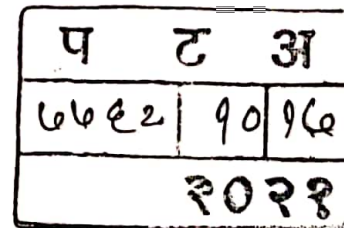 प ट अ
७७६२ १० १७
२०२१